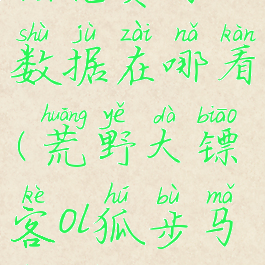 shù jù zài nǎ kàn
数据在哪看
huāng yě dà biāo
(荒野大镖
kè hú bù mǎ
客Ol狐步马